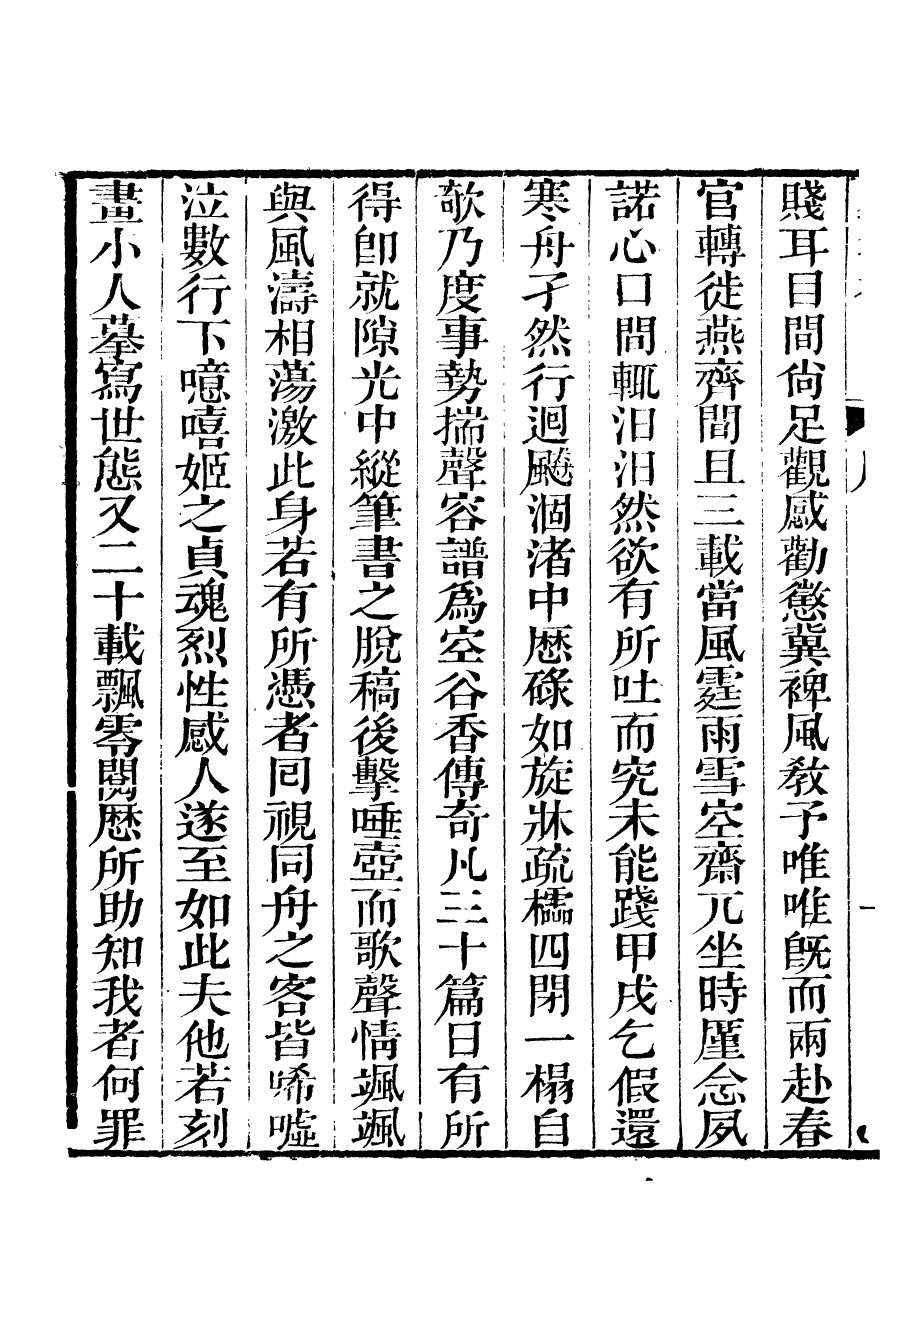 賤耳目間尙足觀感勸懲冀裨風敎予唯唯旣而兩赴春
官轉徙燕齊間且三載當風霆雨雪空齋兀坐時廑念夙
諾心口問輒汩汩然欲有所吐而究未能踐甲戌乞假還
寒舟孑然行迴飈涸渚中歷碌如旋牀疏櫺四閉一榻自
欹乃度事勢揣聲容譜爲空谷香傳奇凡三十篇日有所
得卽就隙光中縱筆書之脫稿後擊唾壺而歌聲情颯颯
與風濤相蕩激此身若有所憑者囘視同舟之客皆唏噓
泣數行下噫嘻姬之貞魂烈性感人遂至如此夫他若刻
畫小人摹寫世態又二十載飄零閱歷所助知我者何罪
一